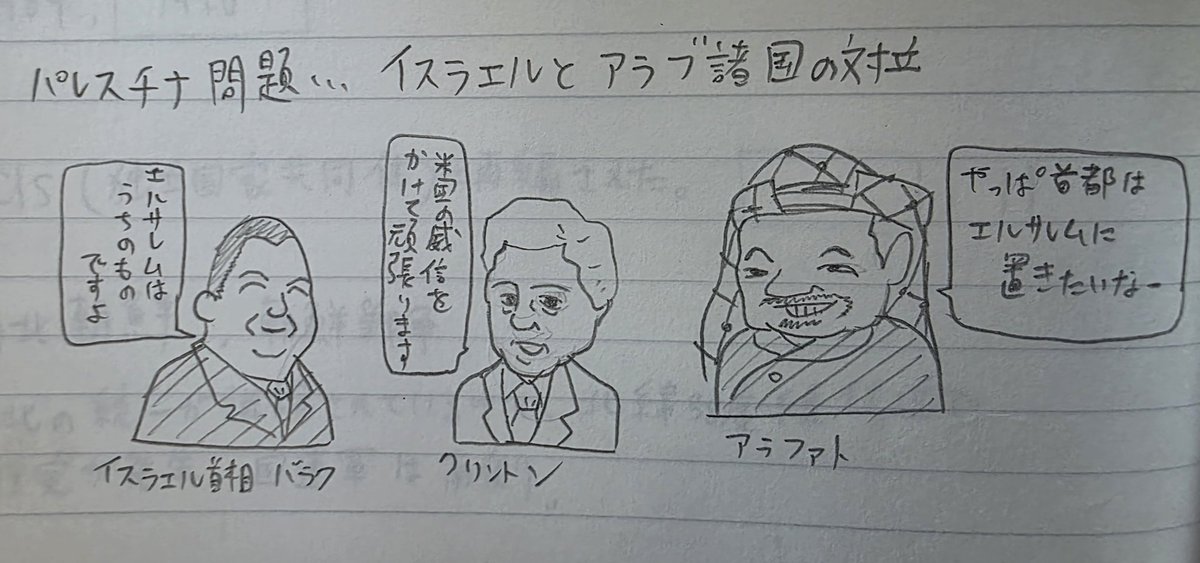 パレスチナ問題… イスラエルとアラブ諸国の対立
エルサレムは
うちのもの
ですよ
米国の威信を
かけて頑張ります
やっぱ首都は
エルサレムに
置きたいなー
イスラエル首相 バラク
クリントン
アラファト